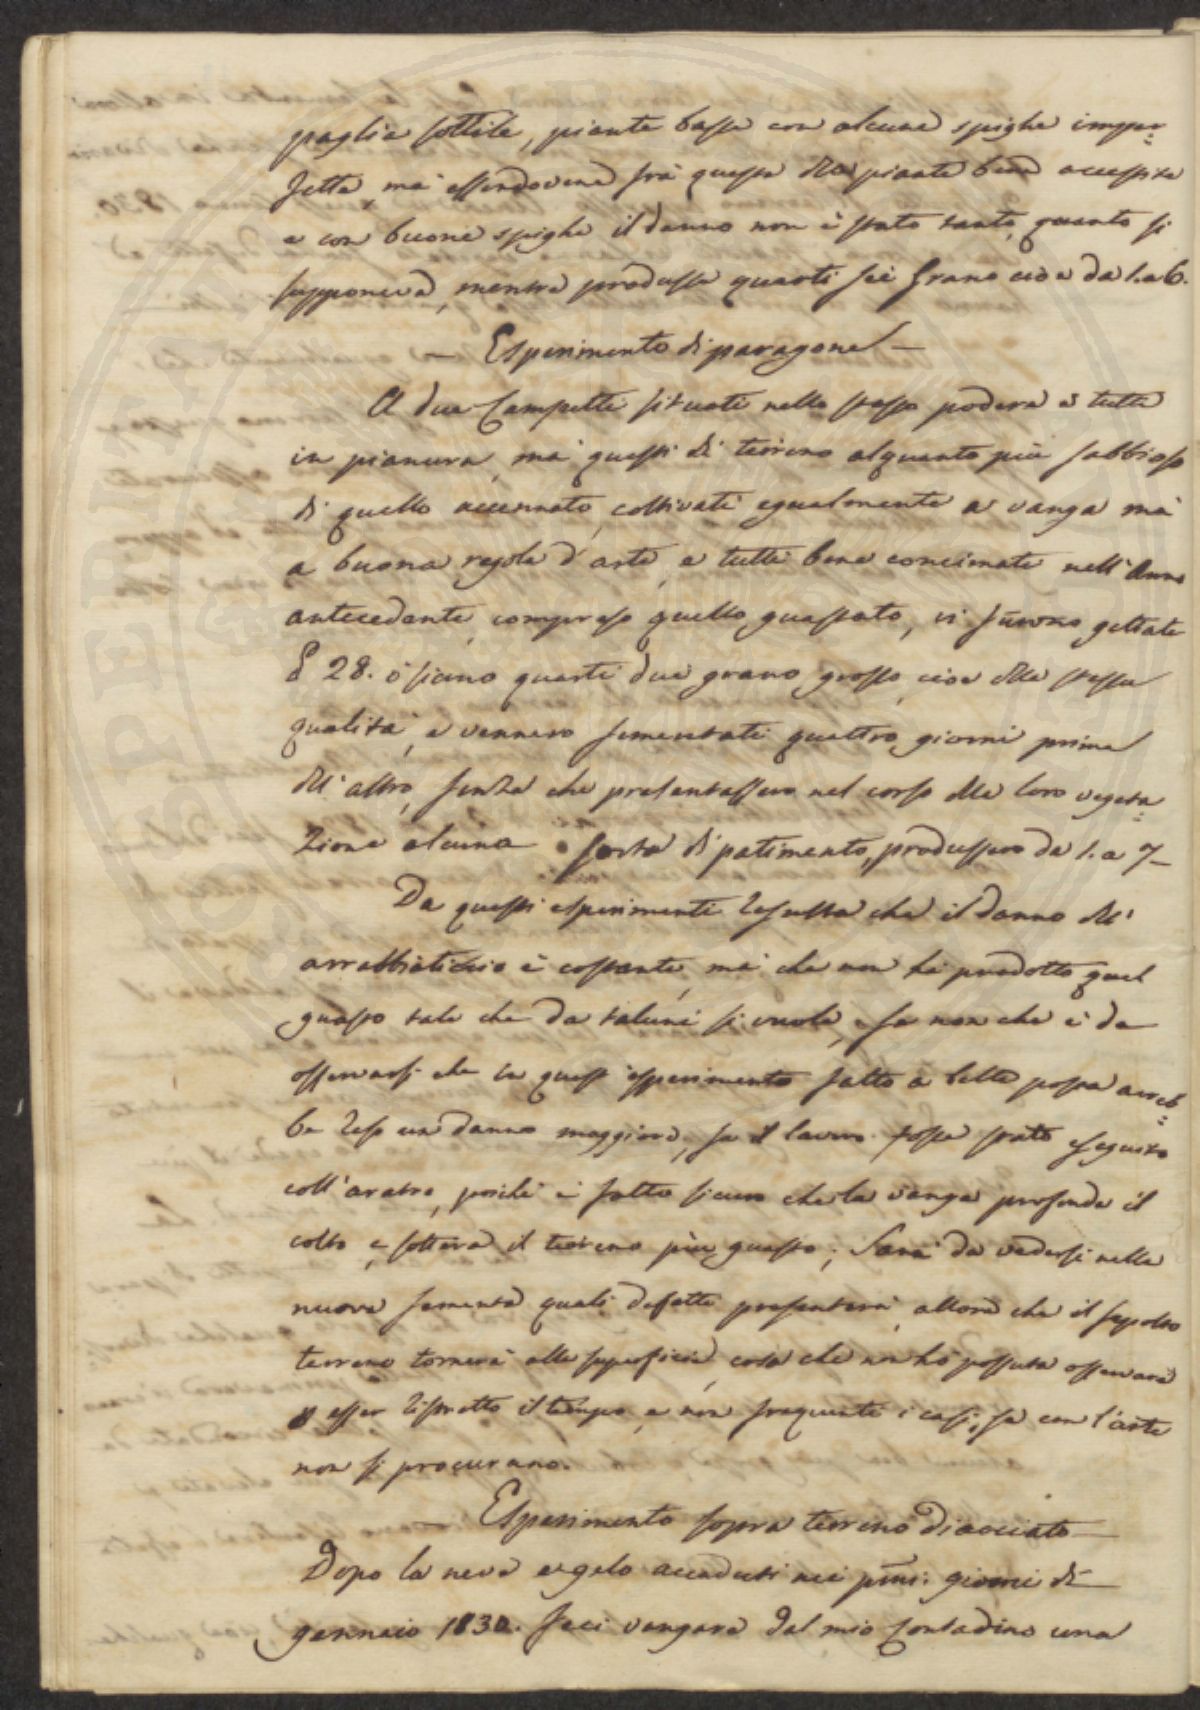 paglia sottile, piante basse con alcune spighe imper=
fette, mà essendovene frà queste delle piante bene accestite
e con buone spighe il danno non è stato tanto, quanto si
supponeva, mentre produsse quarti sei Grano cioè da 1. a 6.
— Esperimento di paragone —
A due Campetti situati nello stesso podere e tutti
in pianura, mà questi di terreno alquanto più sabbioso
di quello accennato, coltivati egualmente a vanga mà
a buona regola d'arte, e tutti bene concimati nell'Anno
antecedente, compreso quello guastato, vi furono gettate
£ 28. ò siano quarti due grano grosso, cioè della stessa
qualità, e vennero sementati quattro giorni prima
dell'altro, senza che presentassero nel corso della loro vegeta=
zione alcuna sorta di patimento, produssero da 1. a 7—
Da questi esperimenti resulta che il danno dell'
arrabbiaticcio è costante, mà che non hà prodotto quel
guasto tale che da taluni si vuole, se non che è da
osservarsi che in quest'esperimento fatto a bella posta avreb=
be reso un danno maggiore, se il lavoro fosse stato eseguito
coll'aratro, poichè è fatto sicuro che la vanga profonda il
colto, e sotterra il terreno più guasto; Sarà da vedersi nella
nuova sementa quali difetti presenterà, allora che il sepolto
terreno tornerà alla superficie, cosa che non hò possuta osservare
p esser ristretto il tempo, e non frequenti i casi, se con l'arte
non si procurano.
— Esperimento sopra terreno diacciato —
Dopo la neve e gelo accaduti nei pmi: giorni di
gennaio 1830. feci vangare dal mio Contadino una